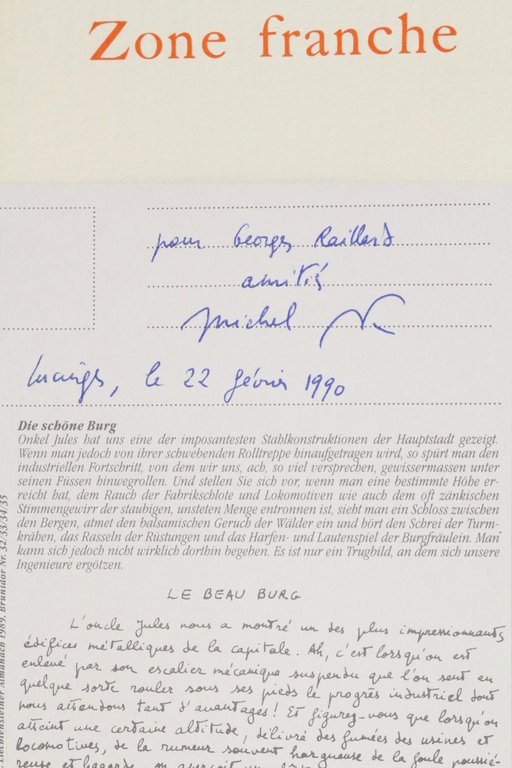 Zone franche
pour Georges Raillard
amitiés
Michel
le 22 février 1990
Die schöne Burg
Onkel Jules hat uns eine der imposantesten Stahlkonstruktionen der Hauptstadt gezeigt.
Wenn man jedoch von ihrer schwebenden Rolltreppe hinaufgetragen wird, so spürt man den
industriellen Fortschritt, von dem wir uns, ach, so viel versprechen, gewissermassen unter
seinen Füssen hinwegrollen. Und stellen Sie sich vor, wenn man eine bestimmte Höhe er-
reicht hat, dem Rauch der Fabrikschlote und Lokomotiven wie auch dem oft zänkischen
Stimmengewirr der staubigen, unsteten Menge entronnen ist, sieht man ein Schloss zwischen
den Bergen, atmet den balsamischen Geruch der Wälder ein und hört den Schrei der Turm-
krähen, das Rasseln der Rüstungen und das Harfen- und Lautenspiel der Burgfräulein. Man
kann sich jedoch nicht wirklich dorthin begeben. Es ist nur ein Trugbild, an dem sich unsere
Ingenieure ergötzen.
Liechtensteiner Almanach 1989, Brunidor Nr. 32/33/34/35
LE BEAU BURG
L'oncle Jules nous a montré un des plus impressionnants
édifices métalliques de la capitale. Ah, c'est lorsqu'on est
enlevé par son escalier mécanique suspendu que l'on sent en
quelque sorte rouler sous ses pieds le progrès industriel dont
nous attendons tant d'avantages! Et figurez-vous que lorsqu'on
atteint une certaine altitude, délivré des fumées des usines et
locomotives, de la rumeur souvent hargneuse de la foule poussié-
reuse et hagarde, on aperçoit un